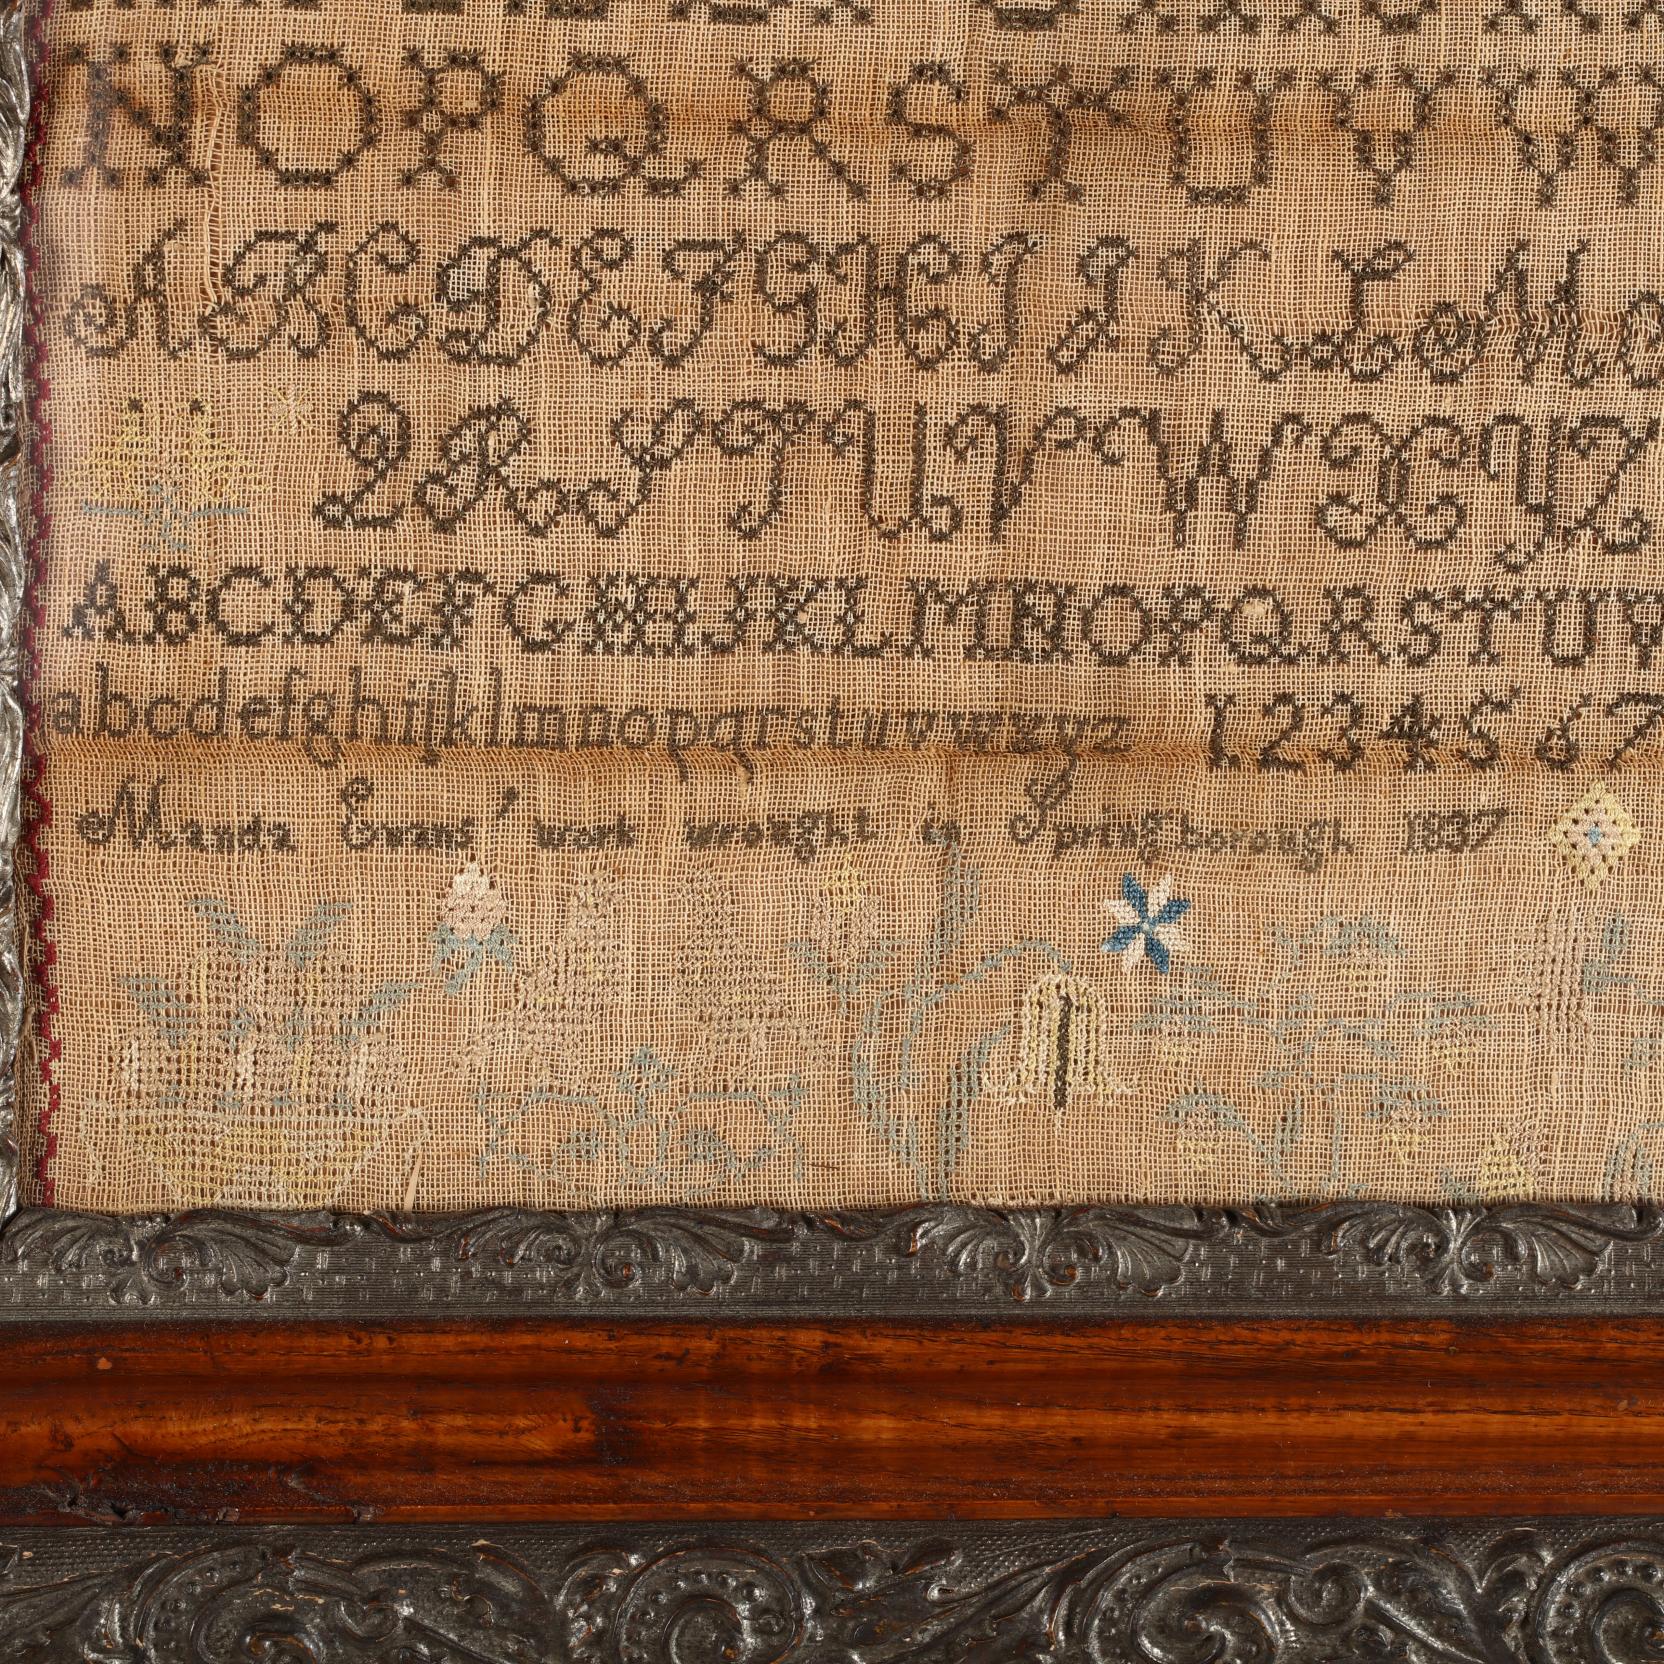 N O P Q R S T U V W
A B C D E F G H I J K L M
Q R S T U V W X Y Z
A B C D E F G H I J K L M N O P Q R S T U V
a b c d e f g h i j k l m n o p q r s t u v w x y z 1 2 3 4 5 6 7
Evans' work wrought in Springborough 1837